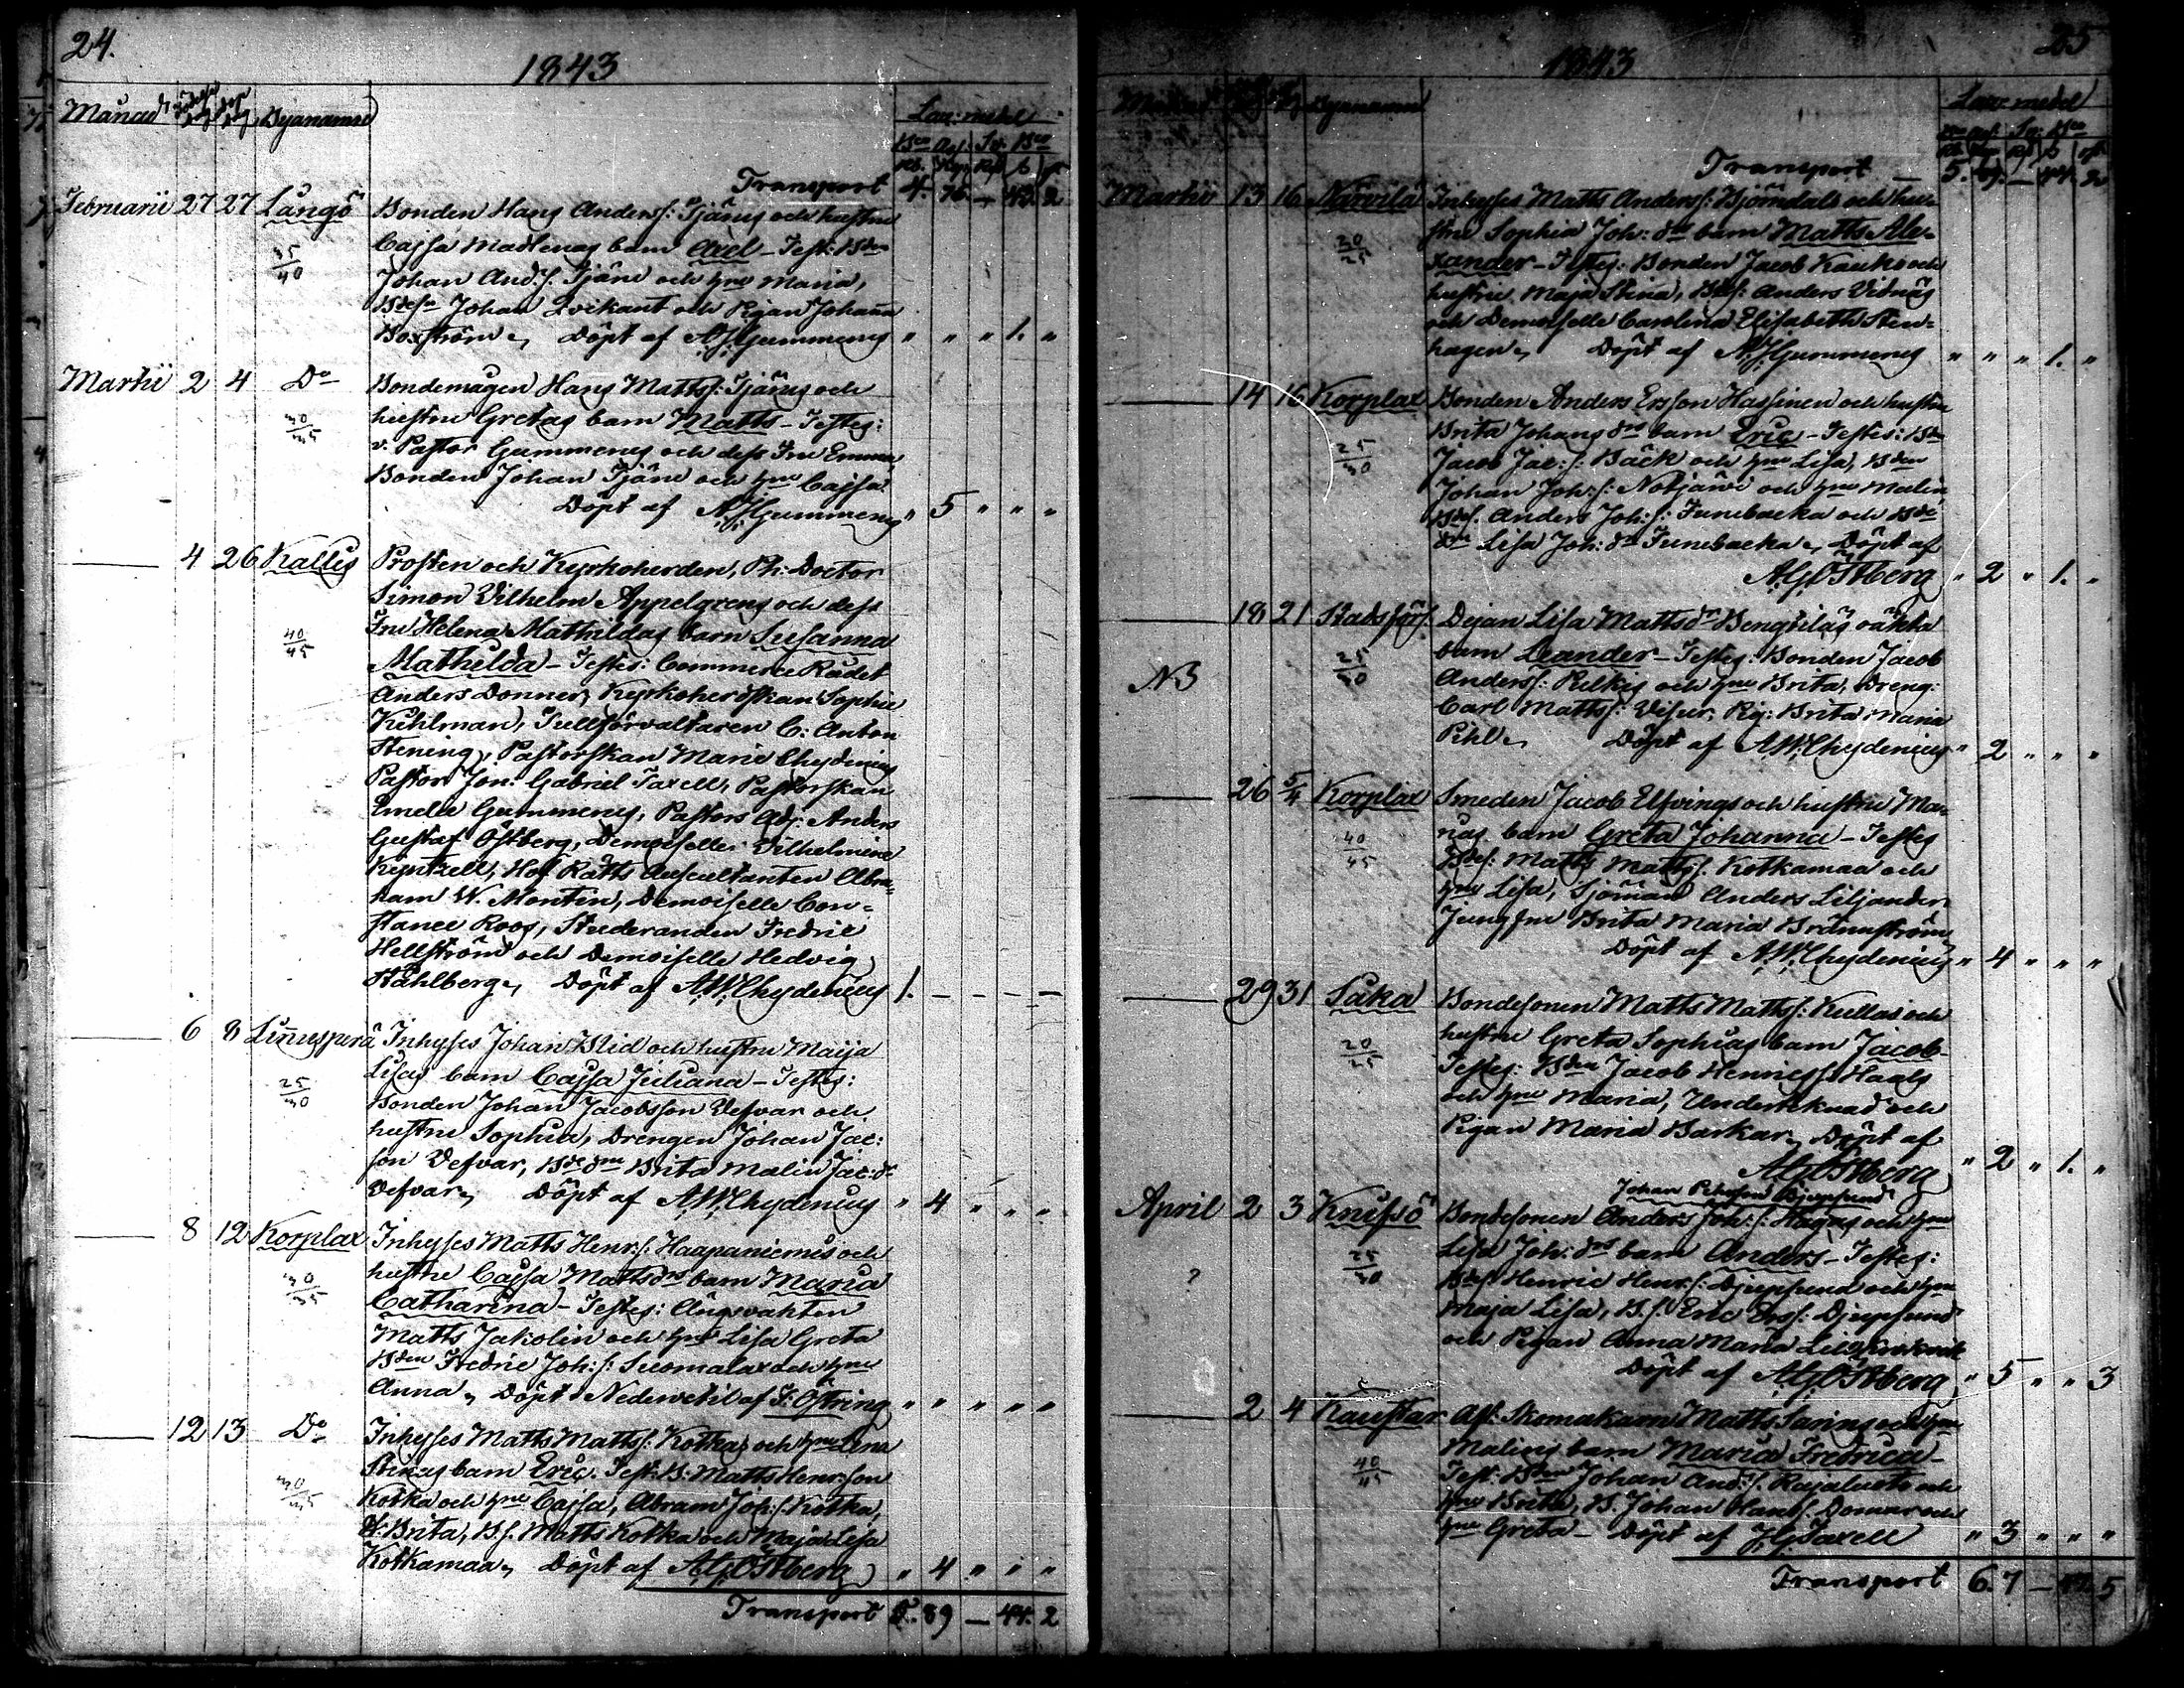 24.
1843
Månad Födelse dag Döpe dag Bynamne Laz: medel
Bco Ass. Sv. Bco
Rb. Kop Rd ß
Transport 4. 76. — 43. 2
Februarii 27 27 Långö Bonden Hans Anderss: Tjäru's och hustru
Cajsa Madlenas barn Axel — Test: Bden
35/40
Johan And.s. Tjäru och hru Maria,
Bdesn Johan Qvikant och Pigan Johanna
Boxström. Döpt af A.J.Gummerus " " " 1. "
Martii 2 4 Do Bondemågen Hans Mattss: Tjäru's och
hustru Gretas barn Matts — Testes:
30/35
v. Pastor Gummerus och dess Fru Emma,
Bonden Johan Tjäru och hru Cajsa.
Döpt af A.J.Gummerus " 5 " " "
4 26 Kallis Prosten och Kyrkoherden, Ph: Doctor
Simon Vilhelm Appelgrens och dess
Fru Helena Mathildas barn Susanna
40/45
Mathilda — Testes: Commerce Rådet
Anders Donner, Kyrkoherdskan Sophie
Kuhlman, Tullförvaltaren C: Anton
Stening, Pastorskan Marie Chydenius
Pastor Jon: Gabriel Taxell, Pastorskan
Emelie Gummerus, Pastors Adj: Anders
Gustaf Östberg, Demoiselle Vilhelmine
Kyntzell, Hof Rätts Auscultanten Abra-
ham W. Montin, Demoiselle Con-
stance Roos, Studeranden Fredric
Hellström och Demoiselle Hedvig
Ståhlberg. Döpt af A.W.Chydenius 1. — — — —
6 8 Linusperä Inhyses Johan Blid och hustru Maija
Lisas barn Cajsa Juliana — Testes:
25/30
Bonden Johan Jacobsson Vefvar och
hustru Sophia, Drengen Johan Jac:
son Vefvar, Bdedn Brita Malin Jac:dr
Vefvar. Döpt af A.W.Chydenius " 4 " " "
8 12 Korplax Inhyses Matts Henr.s: Haapaniemis och
hustru Cajsa Mattsdrs barn Maria
30/35
Catharina — Testes: Ängsvakten
Matts Jakolin och hru Lisa Greta
Bden Fredric Joh:s: Suomalax och hru
Anna. Döpt i Nedervetil af F: Östring " " " " "
12 13 Do Inhyses Matts Mattss: Kotkas och hru Lena
Stinas barn Eric. Test: B: Matts Henr:son
30/35
Kotka och hru Cajsa, Abram Joh:s: Kotka,
H: Brita, B.s. Matts Kotka och Maja Lisa
Kotkamaa. Döpt af A.G.Östberg " 4 " " "
Transport 5. 89 — 44. 2
25
1843
Månad Bynamne Laz: medel
Bco Ass. Sv. Bco
Transport — 5. 89. — 44. 2
Martii 13 16 Närvilä Inhyses Matts Anderss: Björndals och hu-
stru Sophia Joh:drs barn Matts Ale-
20/25
xander — Testes: Bonden Jacob Kauko och
hustru Maja Stina, Bdes: Anders Vidnäs
och Demoiselle Carolina Elisabeth Sten-
hagen. Döpt af A.J.Gummerus " " " 1. "
14 16 Korplax Bonden Anders Ersson Hassinen och hustru
Brita Johansdrs barn Eric — Testes: Bden
25/30
Jacob Jac:s: Bäck och hru Lisa, Bden
Johan Joh:s: Notjärvi och hru Malin
Bdes. Anders Joh:s: Funebacka och Bde
drn Lisa Joh:dr Funebacka. Döpt af
A.G.Östberg " 2 " 1. "
18 21 Stadsförs. Pigan Lisa Mattsdr Bengtiläs oäkta
barn Leander — Testes: Bonden Jacob
N3 25/30
Anderss: Pulkis och hru Brita, Dreng:
Carl Mattss: Visur, Pig: Brita Maria
Pihl. Döpt af A.W.Chydenius " 2 " " "
26 5/4 Korplax Smeden Jacob Elfvings och hustru Ma-
rias barn Greta Johanna — Testes
40/45
Bdes: Matts Mattss. Kotkamaa och
hru Lisa, Sjöman Anders Liljander
Jungfru Brita Maria Brännström
Döpt af A.W.Chydenius " 4 " " "
29 31 Såka Bondesonen Matts Mattss: Kullas och
hustru Greta Sophias barn Jacob
20/25
Testes: Bden Jacob Henricss: Haals
och hru Maria, Undertecknad och
Pigan Maria Barkar. Döpt af
A.G.Östberg " 2 " 1. "
Johan Pehrsson Djupsund
April 2 3 Knifsö Bondesonen Anders Joh:s: Hagas och hru
Lisa Joh:drs barn Anders — Testes:
? 25/30
Bdes Henric Henr.s: Djupsund och hru
Maja Lisa, B.s. Eric Ers.s: Djupsund
och Pigan Anna Maria
Döpt af A.G.Östberg " 5 " " 3
2 4 Kaustar Afs. Skomakarn Matts Sarins och hru
Malins barn Maria Fredrica —
40/45
Test: Bden Johan And:s. Rajaluoto och
hru Brita, B. Johan Hans. Domar och
hru Greta — Döpt af J.G.Taxell " 3 " " "
Transport 6. 7 — 47. 5